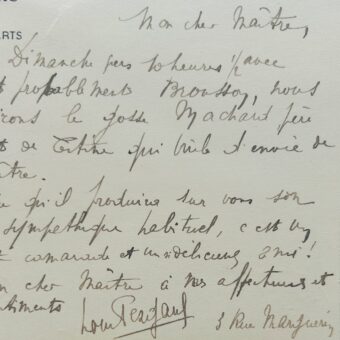 ARTS
Mon cher Maître,
Dimanche vers 10 heures 1/2 avec
probablements Brousson, nous
irons le gosse Machard fils
de Titine qui brûle d'envie de
ître.
qu'il produira sur vous son
sympathique habituel, c'est un
camarade et un délicieux ami!
on cher Maître à nos affectueux et
timents
Louis Pergaud
3 Rue Marguerin